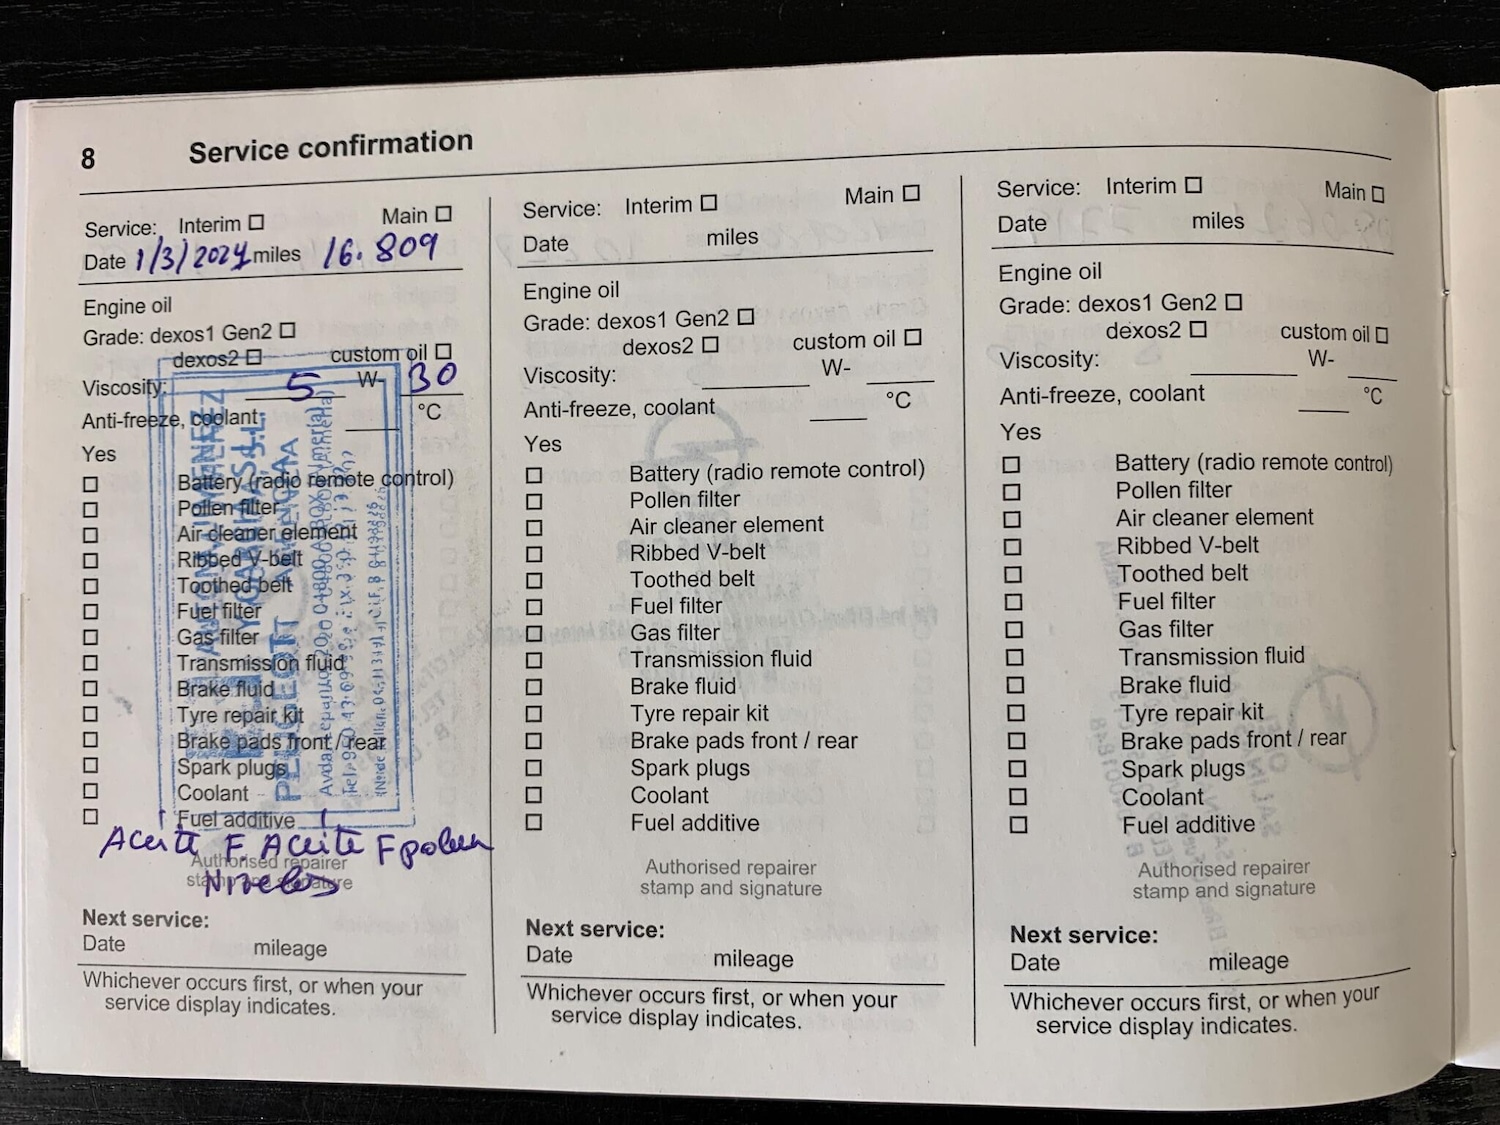 8 Service confirmation
Service: Interim ☐ Main ☐
Date 1/3/2024 miles 16.809
Engine oil
Grade: dexos1 Gen2 ☐
dexos2 ☐ custom oil ☐
Viscosity: 5 W- 30
Anti-freeze, coolant: °C
Yes
☐ Battery (radio remote control)
☐ Pollen filter
☐ Air cleaner element
☐ Ribbed V-belt
☐ Toothed belt
☐ Fuel filter
☐ Gas filter
☐ Transmission fluid
☐ Brake fluid
☐ Tyre repair kit
☐ Brake pads front / rear
☐ Spark plugs
☐ Coolant
☐ Fuel additive
PEUGEOT
Aceite F Aceite F polen
Niveles
Authorised repairer
stamp and signature
Next service:
Date mileage
Whichever occurs first, or when your
service display indicates.
Service: Interim ☐ Main ☐
Date miles
Engine oil
Grade: dexos1 Gen2 ☐
dexos2 ☐ custom oil ☐
Viscosity: W-
Anti-freeze, coolant °C
Yes
☐ Battery (radio remote control)
☐ Pollen filter
☐ Air cleaner element
☐ Ribbed V-belt
☐ Toothed belt
☐ Fuel filter
☐ Gas filter
☐ Transmission fluid
☐ Brake fluid
☐ Tyre repair kit
☐ Brake pads front / rear
☐ Spark plugs
☐ Coolant
☐ Fuel additive
Authorised repairer
stamp and signature
Next service:
Date mileage
Whichever occurs first, or when your
service display indicates.
Service: Interim ☐ Main ☐
Date miles
Engine oil
Grade: dexos1 Gen2 ☐
dexos2 ☐ custom oil ☐
Viscosity: W-
Anti-freeze, coolant °C
Yes
☐ Battery (radio remote control)
☐ Pollen filter
☐ Air cleaner element
☐ Ribbed V-belt
☐ Toothed belt
☐ Fuel filter
☐ Gas filter
☐ Transmission fluid
☐ Brake fluid
☐ Tyre repair kit
☐ Brake pads front / rear
☐ Spark plugs
☐ Coolant
☐ Fuel additive
Authorised repairer
stamp and signature
Next service:
Date mileage
Whichever occurs first, or when your
service display indicates.